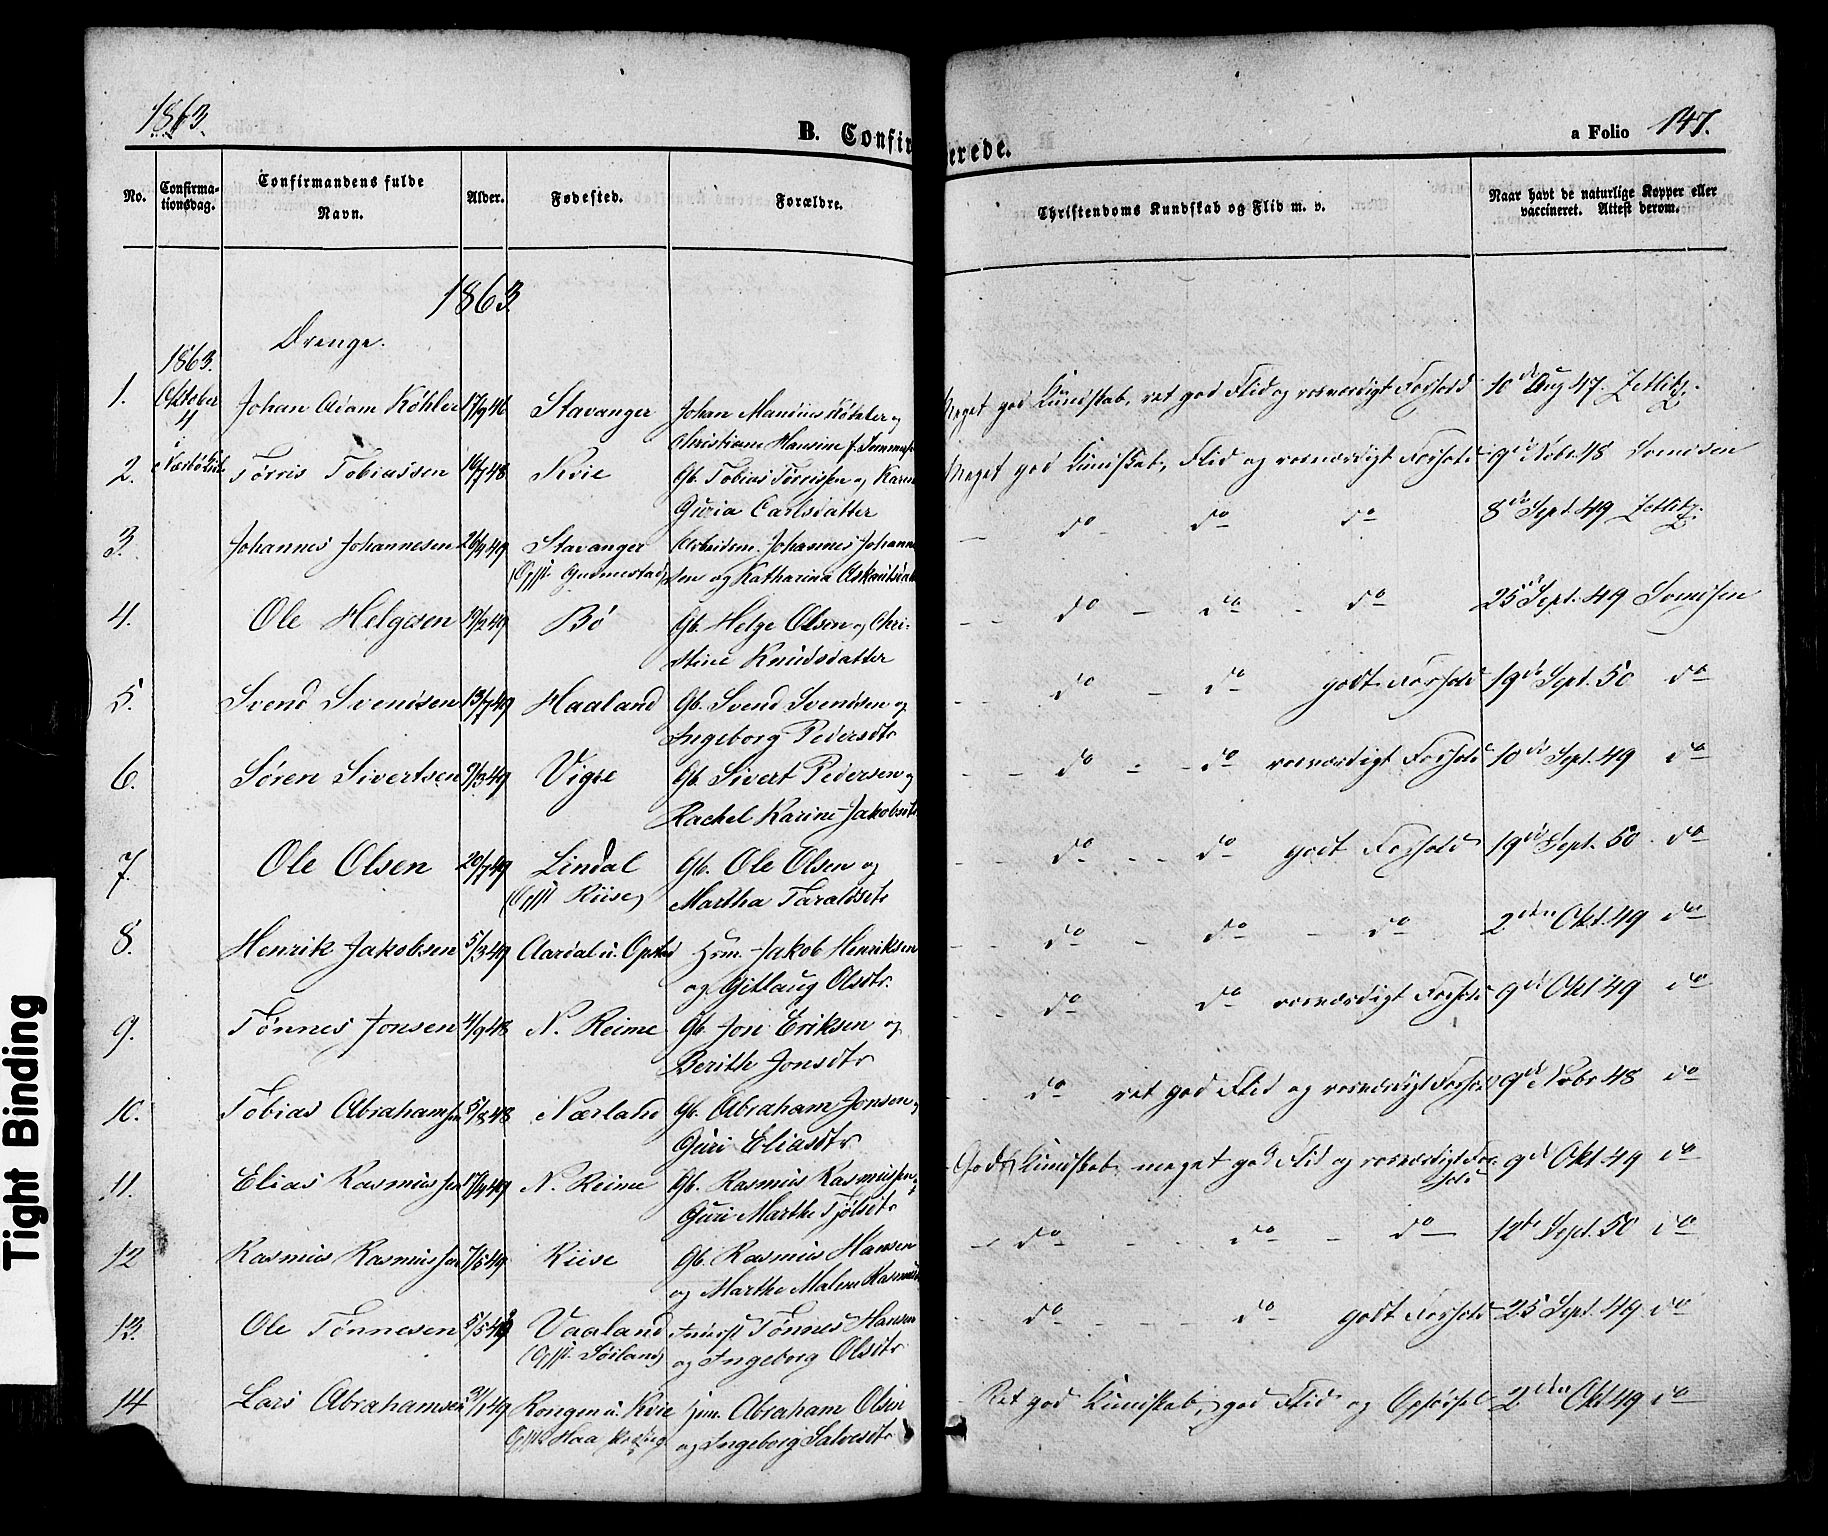 1863.
B. Confirmerede.
a Folio 147.
No.
Confirma-
tionsdag.
Confirmandens fulde
Navn.
Alder.
Fødested.
Forældre.
Christendoms Kundskab og Flid m. v.
Naar havt de naturlige Kopper eller
vaccineret. Attest derom.
1863
Drenge.
1863.
1. Oktober Johan Adam Köhler 17/9 46 Stavanger Johan Mandius Köhler og Meget god Kundskab, ret god Flid og rosværdigt Forhold 10de Aug 47. Zetlitz.
4 Christiane Hansine f.
2. Nærbø Tørris Tobiassen 16/7 48 Kvie Gb. Tobias Tørrissen og Karen Meget god Kundskab, Flid og rosværdigt Forhold 9de Novbr. 48 Svendsen
Guria Carlsdatter
3. Johannes Johannesen 26/9 49 Stavanger Arbeidsm. Johannes Johanne- do do do 8de Sept. 49 Zetlitz.
(Opf. Gudmestad) sen og Katharina
4. Ole Helgesen 19/2 49 Bø Gb. Helge Olsen og Chri- do do do 25de Sept. 49 Svendsen
stine Knudsdatter
5. Svend Svendsen 13/7 49 Haaland Gb. Svend Svendsen og do do godt Forhold 19de Sept. 50 do
Ingeborg Pedersdtr
6. Søren Sivertsen 9/3 49 Vigre Gb. Sivert Pedersen og do do rosværdigt Forhold 10de Sept. 49 do
Rachel Karine Jakobsdtr
7. Ole Olsen 20/7 49 Lindal Gb. Ole Olsen og do do godt Forhold 19de Sept. 50 do
(Opf. Riise) Martha Taraldsdtr
8. Henrik Jakobsen 5/3 49 Aardal u. Opstad Hsm. Jakob Henriksen do do do 2den Okt. 49 do
og Gitlaug Olsdtr.
9. Tønnes Jonsen 4/9 48 N. Reime Gb. Jon Eriksen og do do rosværdigt Forhold 9de Okt 49 do
Berithe Jonsdtr
10. Tobias Abrahamsen 5/8 48 Nærland Gb. Abraham Jonsen og do ret god Flid og rosværdigt Forhold 9de Novbr 48 do
Guri Eliasdtr
11. Elias Rasmussen 17/9 49 N. Reime Gb. Rasmus Rasmussen og God Kundskab, meget god Flid og rosværdigt For- 9de Okt. 49 do
Guri Marthe Tjølsdtr hold
12 Rasmus Rasmussen 7/5 49 Riise Gb. Rasmus Hansen do do do 12te Sept. 50 do
og Marthe Malene
13. Ole Tønnesen 5/5 49 Vaaland Tønnes Hansen do do godt Forhold 25 Sept. 49 do
(Opf. Søiland) og Ingeborg Olsdtr
14 Lars Abrahamsen 31/1 49 Rongen u. Kvie Abraham Olsen Ret god Kundskab, god Flid og Opførsel 2den Okt 49 do
og Ingeborg Salvesdtr
Tight Binding